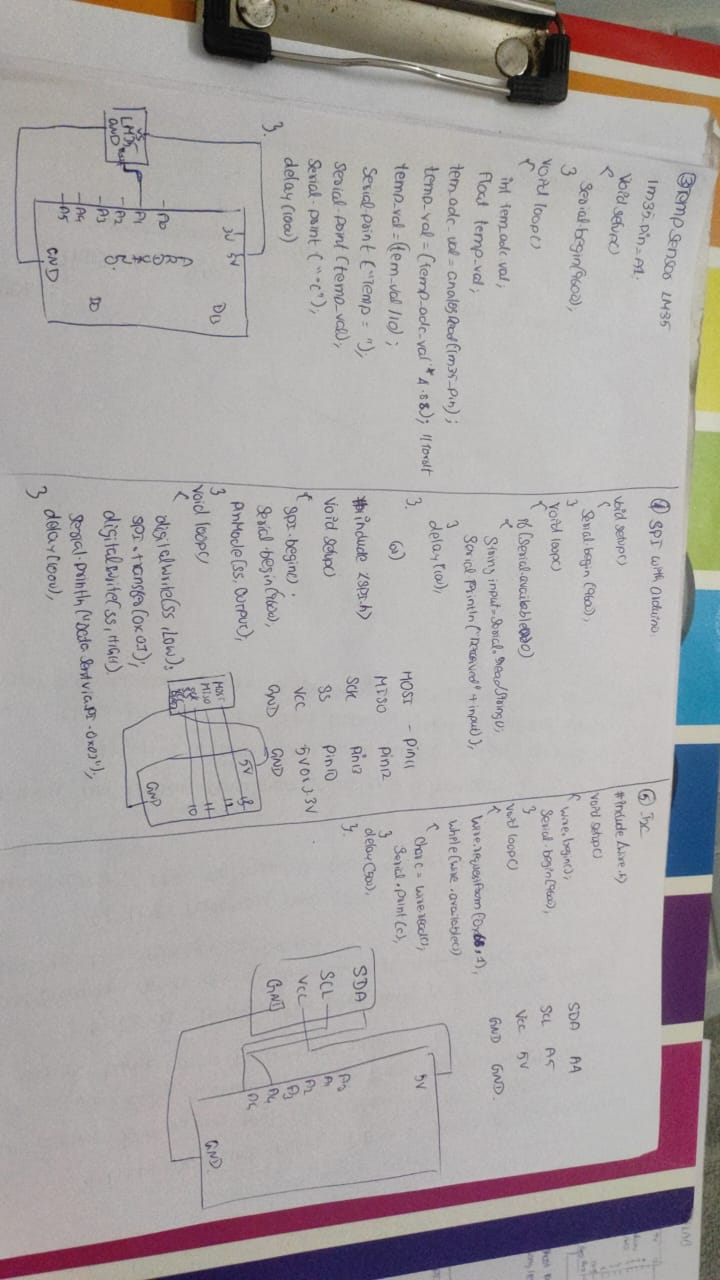 ③ Temp sensor LM35
lm35-pin=A1.
void setup()
{
Serial.begin(9600);
}
void loop()
{
int tem_adc_val;
float temp_val;
tem_adc_val = analogRead(lm35-pin);
temp_val=(temp_adc_val * 4.88);
temp_val=(tem_val/10);
Serial.print ("Temp = ");
Serial.print (temp_val);
Serial.print ("°C");
delay(1000)
}
3V 5V
D13
ARDUINO
A0
A1
A2
A3
A4
A5
D0
GND
VS
LM35
GND
④ SPI with arduino.
void setup()
{
Serial.begin (9600);
}
void loop()
{
if (Serial.available()>0)
{
String input=Serial.readString();
Serial.Println ("Received" + input));
}
delay(100);
}.
(or)
#include <SPI.h>
void setup()
{
SPI.begin();
Serial.begin(9600);
PinMode(SS, OUTPUT);
}
void loop()
{
digitalWrite(SS, LOW);
SPI.transfer(0x01);
digitalWrite(SS, HIGH)
Serial.println("Data Sent via SPI-0x01");
delay(1000);
}
MOSI - Pin11
MISO Pin12
SCK Pin13
SS Pin10
VCC 5V or 3.3V
GND GND
MOSI
MISO
SCK
GND
5V
13
12
11
10
GND
⑤ I2C
#include <wire.h>
void setup()
{
wire.begin();
Serial.begin(9600);
}
void loop()
{
wire.requestfrom(0x68,1);
while(wire.available())
{
Char c = wire.read();
Serial.print(c);
}
delay(500);
}.
SDA A4
SCL A5
Vcc 5V
GND GND.
SDA
SCL
VCC
GND
5V
A0
A1
A2
A3
A4
GND